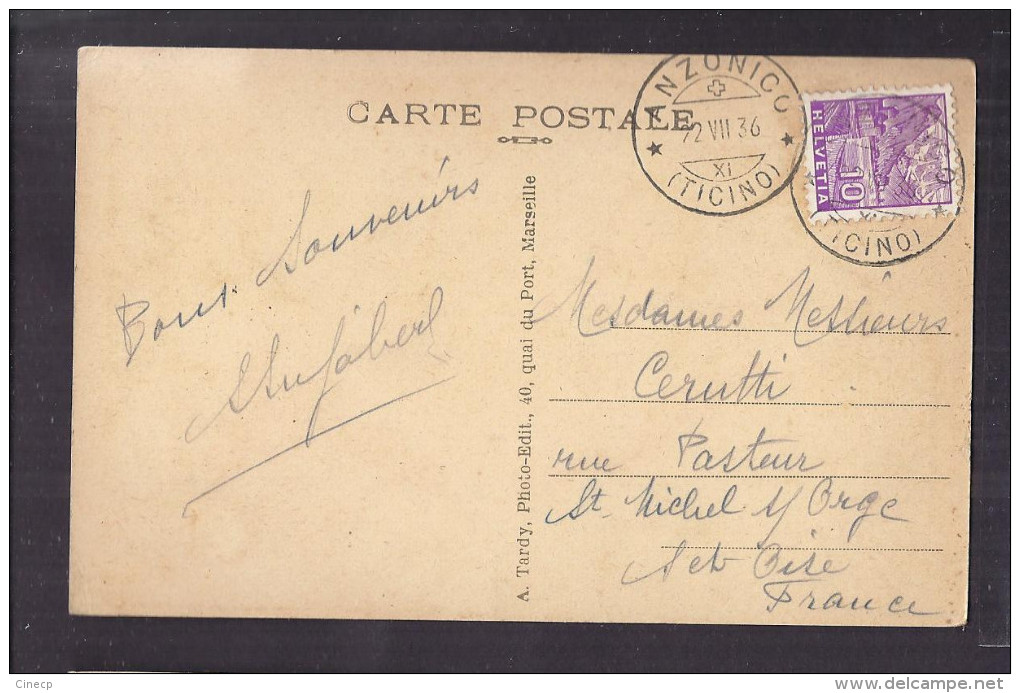 CARTE POSTALE
ANZONICO
22 VII 36
XI
(TICINO)
HELVETIA
10
XI
(TICINO)
Bons Souvenirs
A. Tardy, Photo-Edit., 40, quai du Port, Marseille
Mesdames Messieurs
Cerutti
rue Pasteur
St Michel s/ Orge
S et Oise
France
Cinecp
www.delcampe.net